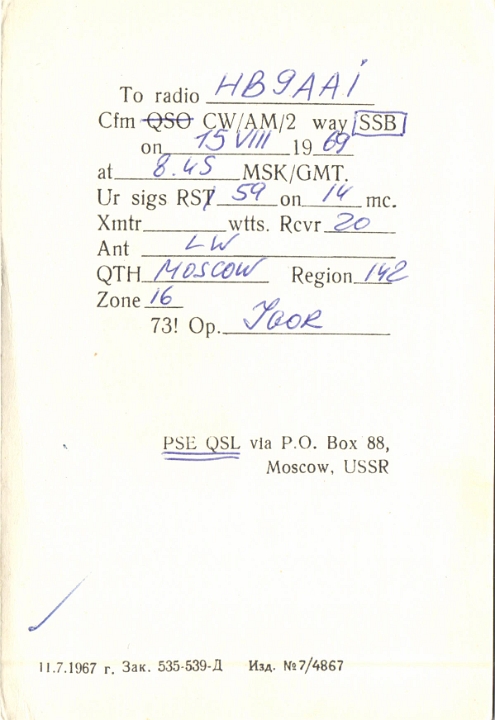 To radio HB9AAI
Cfm QSO CW/AM/2 way SSB
on 15 VIII 1969
at 8.45 MSK/GMT.
Ur sigs RST 59 on 14 mc.
Xmtr wtts. Rcvr 20
Ant LW
QTH MOSCOW Region 142
Zone 16
73! Op. IGOR
PSE QSL via P.O. Box 88,
Moscow, USSR
11.7.1967 г. Зак. 535-539-Д Изд. №7/4867